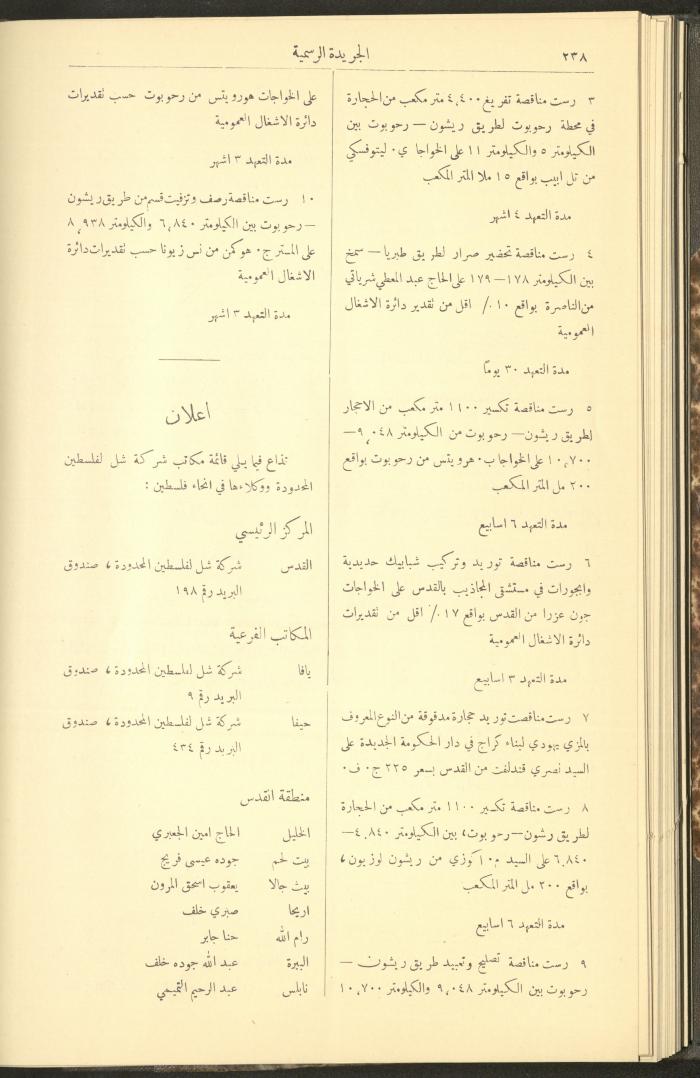 ٢٣٨
الجريدة الرسمية
٣ رست مناقصة تفريغ ٤,٤٠٠ متر مكعب من الحجارة
في محطة رحوبوت لطريق ريشون — رحوبوت بين
الكيلومتر ٥ والكيلومتر ١١ على الخواجا ي٠ ليتوفسكي
من تل ابيب بواقع ١٥ ملا المتر المكعب
مدة التعهد ٤ اشهر
٤ رست مناقصة تحضير صرار لطريق طبريا — سمخ
بين الكيلومتر ١٧٨ — ١٧٩ على الحاج عبد المعطي شرياتي
من الناصرة بواقع ١٠ ٪ اقل من تقدير دائرة الاشغال
العمومية
مدة التعهد ٣٠ يوماً
٥ رست مناقصة تكسير ١١٠٠ متر مكعب من الاحجار
لطريق ريشون — رحوبوت من الكيلومتر ٩,٠٤٨ —
١٠,٧٠٠ على الخواجا ب٠ هرويتس من رحوبوت بواقع
٢٠٠ مل المتر المكعب
مدة التعهد ٦ اسابيع
٦ رست مناقصة توريد وتركيب شبابيك حديدية
وابجورات في مستشفى المجاذيب بالقدس على الخواجات
جون عزرا من القدس بواقع ١٧ ٪ اقل من تقديرات
دائرة الاشغال العمومية
مدة التعهد ٣ اسابيع
٧ رست مناقصت توريد حجارة مدقوقة من النوع المعروف
بالمزي يهودي لبناء كراج في دار الحكومة الجديدة على
السيد نصري قندلفت من القدس بسعر ٢٢٥ ج٠ ف٠
٨ رست مناقصة تكسير ١١٠٠ متر مكعب من الحجارة
لطريق رشون — رحوبوت، بين الكيلومتر ٤,٨٤٠ —
٦,٨٤٠ على السيد م٠ كوزي من ريشون لوزيون،
بواقع ٢٠٠ مل المتر المكعب
مدة التعهد ٦ اسابيع
٩ رست مناقصة تصليح وتعبيد طريق ريشون —
رحوبوت بين الكيلومتر ٩,٠٤٨ والكيلومتر ١٠,٧٠٠
على الخواجات هورويتس من رحوبوت حسب تقديرات
دائرة الاشغال العمومية
مدة التعهد ٣ اشهر
١٠ رست مناقصة رصف وتزفيت قسم من طريق ريشون
— رحوبوت بين الكيلومتر ٦,٨٤٠ والكيلومتر ٨,٩٣٨
على المستر ج٠ هوكمن من نس زيونا حسب تقديرات دائرة
الاشغال العمومية
مدة التعهد ٣ اشهر
اعلان
تذاع فيما يلي قائمة مكاتب شركة شل لفلسطين
المحدودة ووكلاءها في انحاء فلسطين :
المركز الرئيسي
القدس شركة شل لفلسطين المحدودة، صندوق
البريد رقم ١٩٨
المكاتب الفرعية
يافا شركة شل لفلسطين المحدودة، صندوق
البريد رقم ٩
حيفا شركة شل لفلسطين المحدودة، صندوق
البريد رقم ٤٣٤
منطقة القدس
الخليل الحاج امين الجعبري
بيت لحم جوده عيسى فريج
بيت جالا يعقوب اسحق المرون
اريحا صبري خلف
رام الله حنا جابر
البيرة عبد الله جوده خلف
نابلس عبد الرحيم التميمي